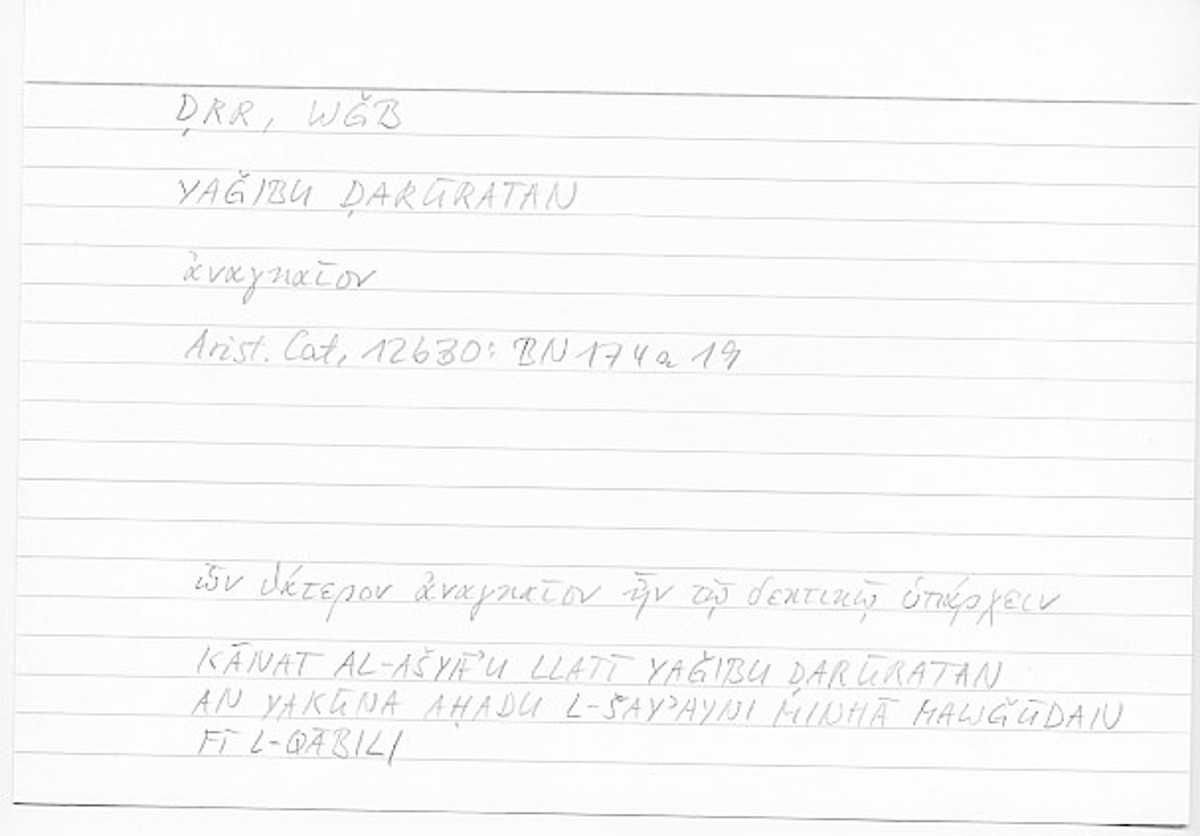 ḌRR, WǦB
YAǦIBU ḌARŪRATAN
ἀναγκαῖον
Arist. Cat. 12b30: BN 174a 19
ὧν θάτερον ἀναγκαῖον ἦν τῷ δεκτικῷ ὑπάρχειν
KĀNAT AL-AŠYĀʾU LLATĪ YAǦIBU ḌARŪRATAN
AN YAKŪNA AḤADU L-ŠAYʾAYNI MINHĀ MAWǦŪDAN
FĪ L-QĀBILI